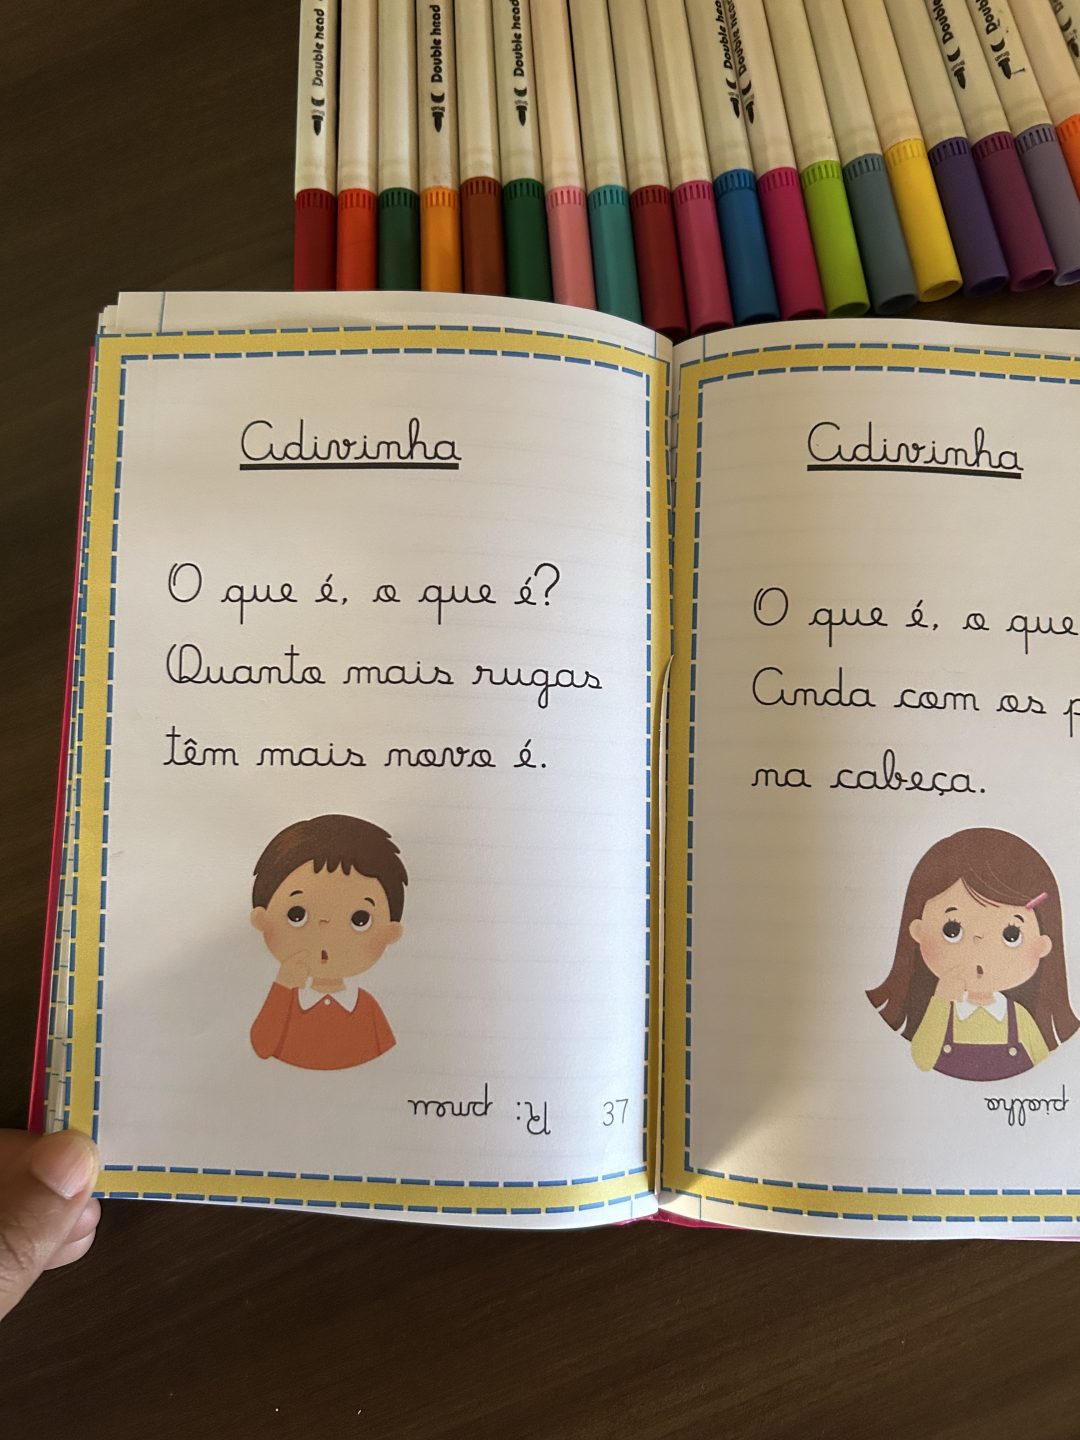 Double head
Double head
Double head
Double head
Double head
Double
Double
Adivinha
O que é, o que é?
Quanto mais rugas
têm mais novo é.
R: pneu
37
Adivinha
O que é, o que
Anda com os
na cabeça.
piolho